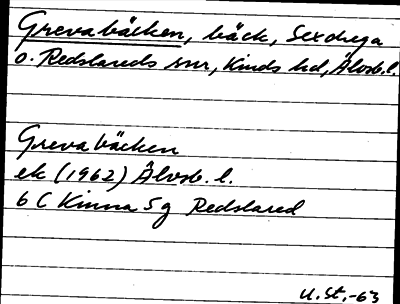 Grevabäcken, bäck, Sexdrega
o. Redslareds snr, Kinds hd, Älvsb. l.
Grevabäcken
ek (1962) Älvsb. l.
6 C Kinna 5 g Redslared
U. St. -63